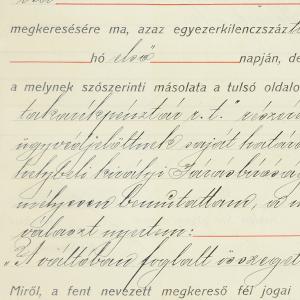 megkeresésére ma, azaz egyezerkilenczszáz
hó első napján, de
a melynek szószerinti másolata a tulsó oldalo
takarékpénztár r. t." részére
ügyvédjelöltnek saját határ
helybeli királyi Járásbíróság
mélyesen bemutattam, a m
választ nyertem:
„A váltóban foglalt összeget
Miről, a fent nevezett megkereső fél jogai